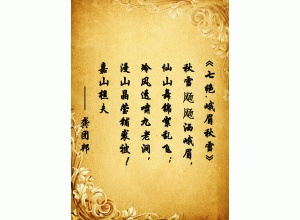 《七绝.峨眉秋雪》
秋雪飕飕洒峨眉,
仙山舞锦絮乱飞;
冷风透啸九老洞,
漫山晶莹银裘披!
嘉山樵夫
——龚团邦